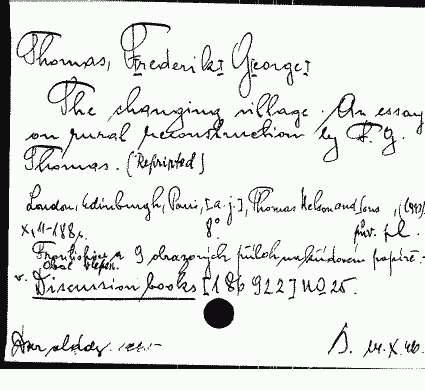 Thomas, Frederik George
The changing village. An essay
on rural reconstruction by F. G.
Thomas. (Reprinted)
London, Edinburgh, Paris, [a. j.], Thomas Nelson and Sons, (1943)
X, 11-188 s. 8°. pl.
9 obrazových příloh na křídovém papíře.
v. Discussion books [186922] No 25.
14.X.46.